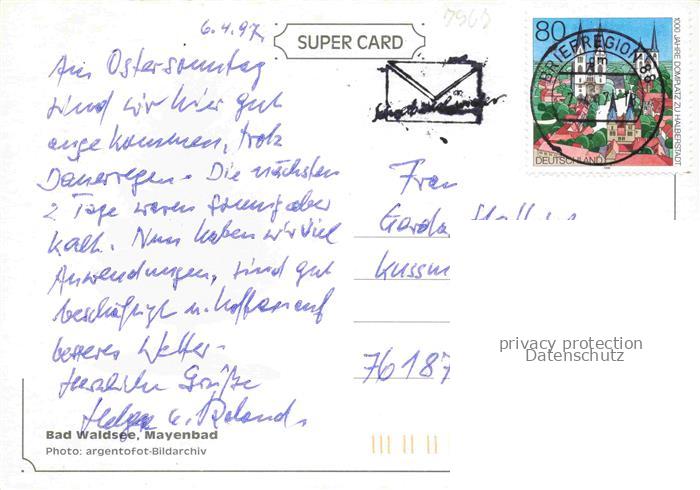 6.4.97
SUPER CARD
Am Ostersonntag
sind wir hier gut
angekommen, trotz
Dauerregen. Die nächsten
2 Tage waren sonnig aber
kalt. Nun haben wir viel
Anwendungen, sind gut
beschäftigt u. hoffen auf
besseres Wetter.
Herzliche Grüße
Helga u. Roland
Bad Waldsee, Mayenbad
Photo: argentofot-Bildarchiv
80
1000 JAHRE DOMPLATZ ZU HALBERSTADT
DEUTSCHLAND
BRIEFREGION 88
Frau
Gerda
76187
privacy protection
Datenschutz